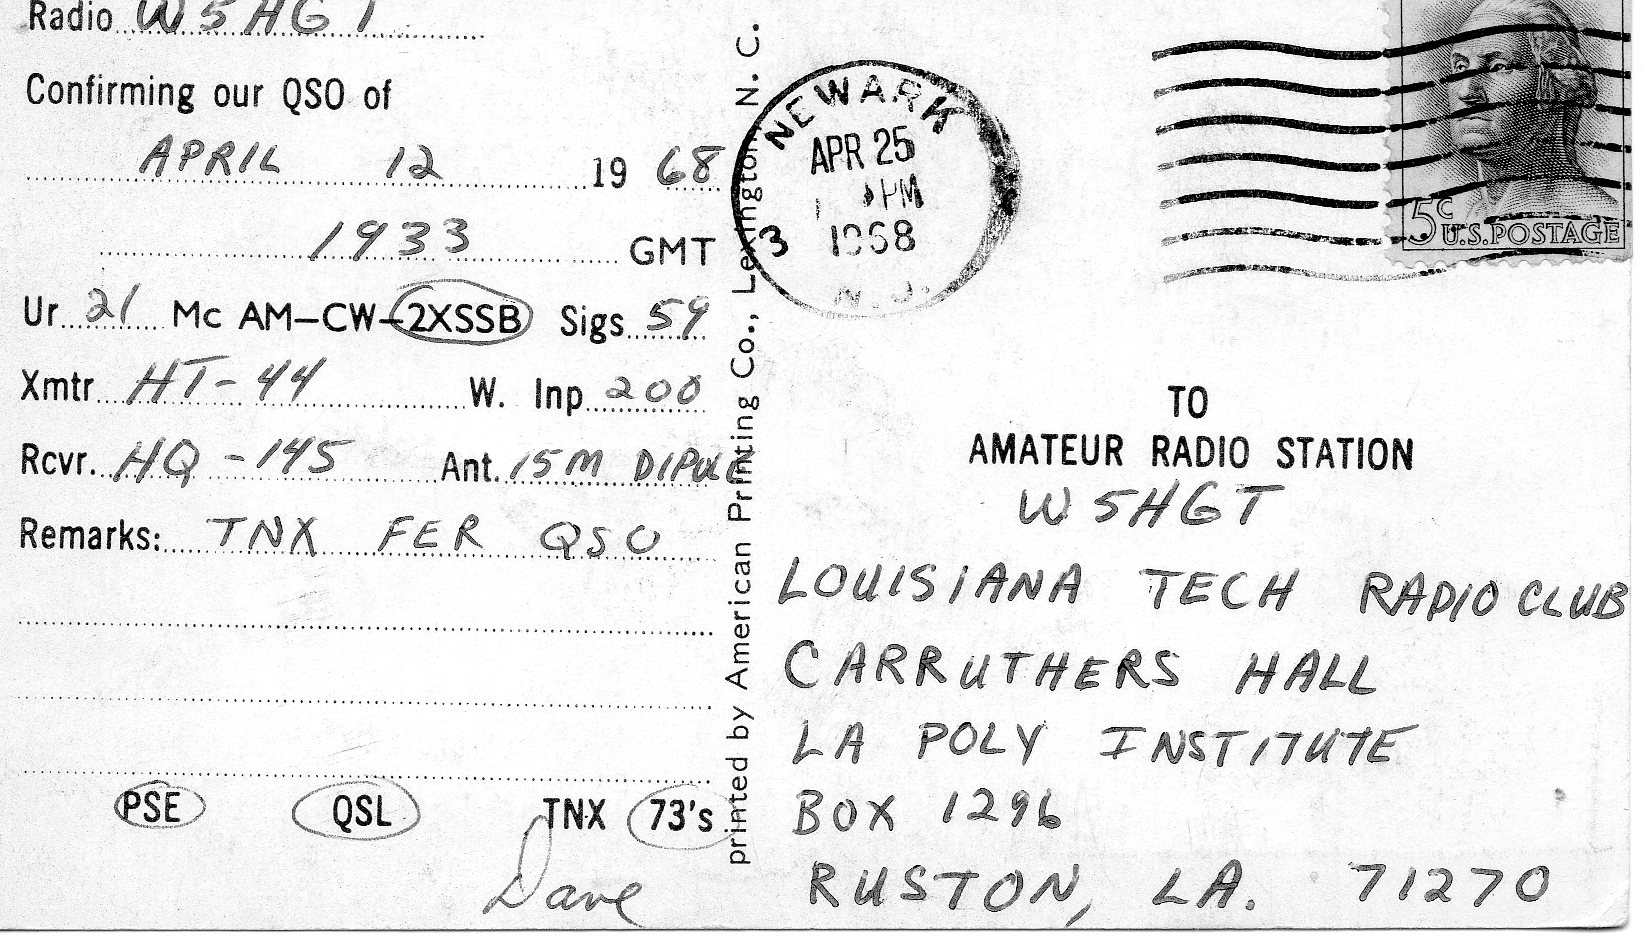 Radio W5HGT
Confirming our QSO of
APRIL 12 1968
1933 GMT
Ur 21 Mc AM-CW-2XSSB Sigs 59
Xmtr HT-44 W. Inp 200
Rcvr. HQ-145 Ant. 15M DIPOLE
Remarks: TNX FER QSO
PSE QSL TNX 73's
Dave
printed by American Printing Co., Lexington, N. C.
NEWARK
APR 25
PM
1968
N.J.
3
5c
U.S. POSTAGE
TO
AMATEUR RADIO STATION
W5HGT
LOUISIANA TECH RADIO CLUB
CARRUTHERS HALL
LA POLY INSTITUTE
BOX 1296
RUSTON, LA. 71270